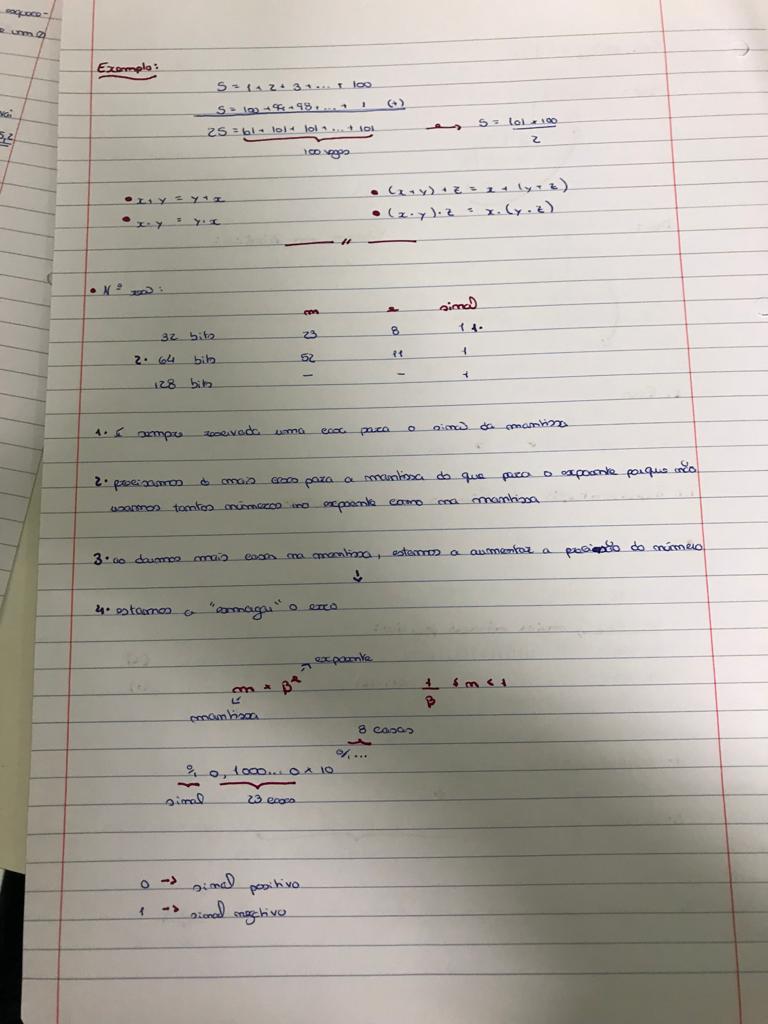 esquece-
e um
vai
5,2
Exemplo:
S = 1 + 2 + 3 + ... + 100
S = 100 + 99 + 98 + ... + 1 (+)
2S = 101 + 101 + 101 + ... + 101 → S = 101 * 100 / 2
100 vezes
• x + y = y + x • (x + y) + z = x + (y + z)
• x · y = y · x • (x · y) · z = x · (y · z)
— " —
• Nº real:
m e sinal
32 bits 23 8 1 1.
2. 64 bits 52 11 1
128 bits - - 1
1. É sempre reservada uma casa para o sinal da mantissa
2. precisamos de mais casas para a mantissa do que para o expoente porque não
usarmos tantos números no expoente como na mantissa
3. ao darmos mais casas na mantissa, estamos a aumentar a precisão do número
↓
4. estamos a "esmagar" o erro
expoente
m * β^e 1/β ≤ m < 1
mantissa
8 casas
0/1 ...
0/1 0, 1000...0 * 10
sinal 23 casas
0 → sinal positivo
1 → sinal negativo